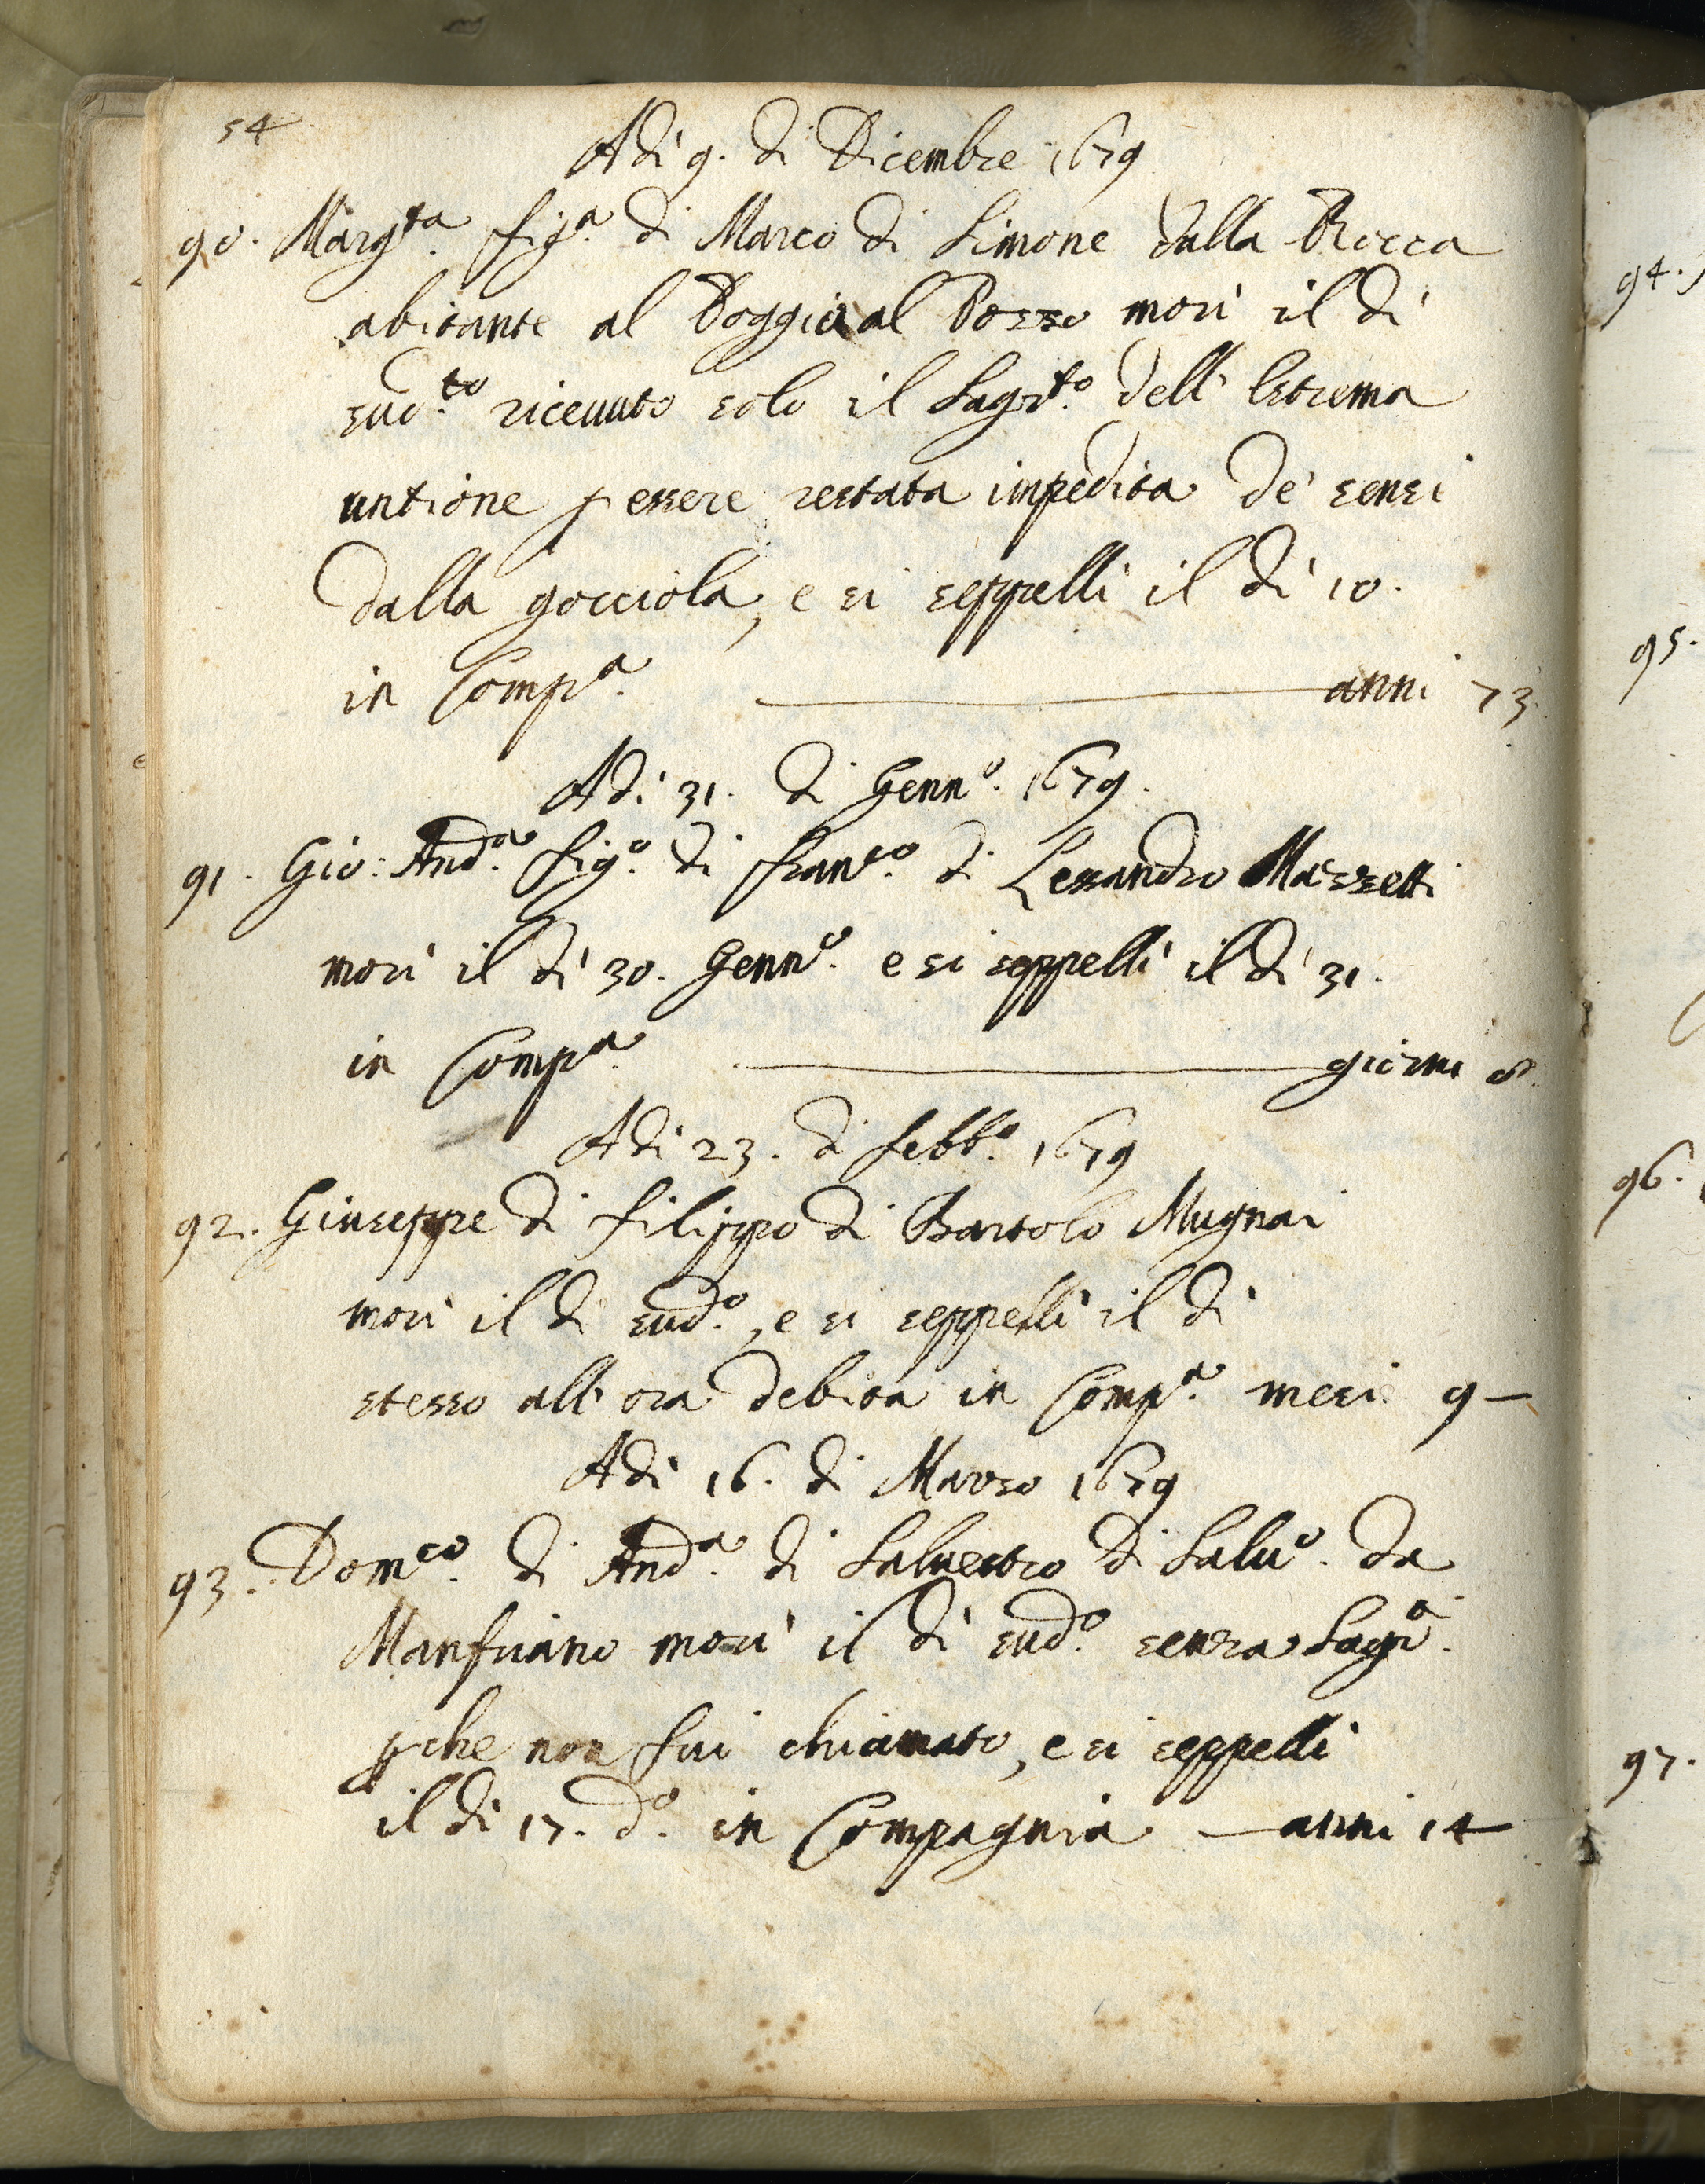 54
Adì 9. di Dicembre 1679
90. Marg.ta fig.a di Marco di Simone dalla Rocca
abitante al Poggio al Pozzo morì il dì
sud.to riceuuto solo il Sagr.to dell' Estrema
untione p essere restata impedita de' sensi
dalla gocciola, e si seppellì il dì 10.
in Comp.a anni 73.
Adì 31. di Genn.o 1679.
91. Gio: And.a fig.o di Fran.co di Lessandro Mazzetti
morì il dì 30. Genn.o e si seppellì il dì 31.
in Comp.a giorni 8.
Adì 23. di Febb.o 1679
92. Giuseppe di Filippo di Bartolo Mugnai
morì il dì sud.o, e si seppellì il dì
stesso all' ora debita in Comp.a mesi 9 —
Adì 16. di Marzo 1679
93. Dom.co di And.a di Saluestro di Salu.o da
Manfriano morì il dì sud.o senza Sagr.i
pche non fui chiamato, e si seppellì
il dì 17. d.o in Compagnia — anni 14
94.
95.
96.
97.